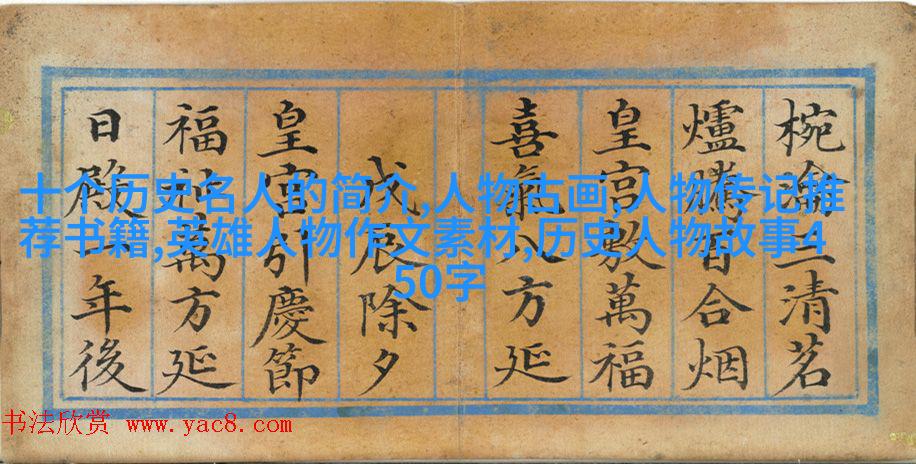 椀瀹三清茗
爐騰百合烟
皇宮敷萬福
喜氣八方延
戊辰除夕
皇宮引慶節
福祉萬方延
日殿一年後
十个历史名人的简介,人物古画,人物传记推
荐书籍,英雄人物作文素材,历史人物故事4
50字
书法欣赏 www.yac8.com